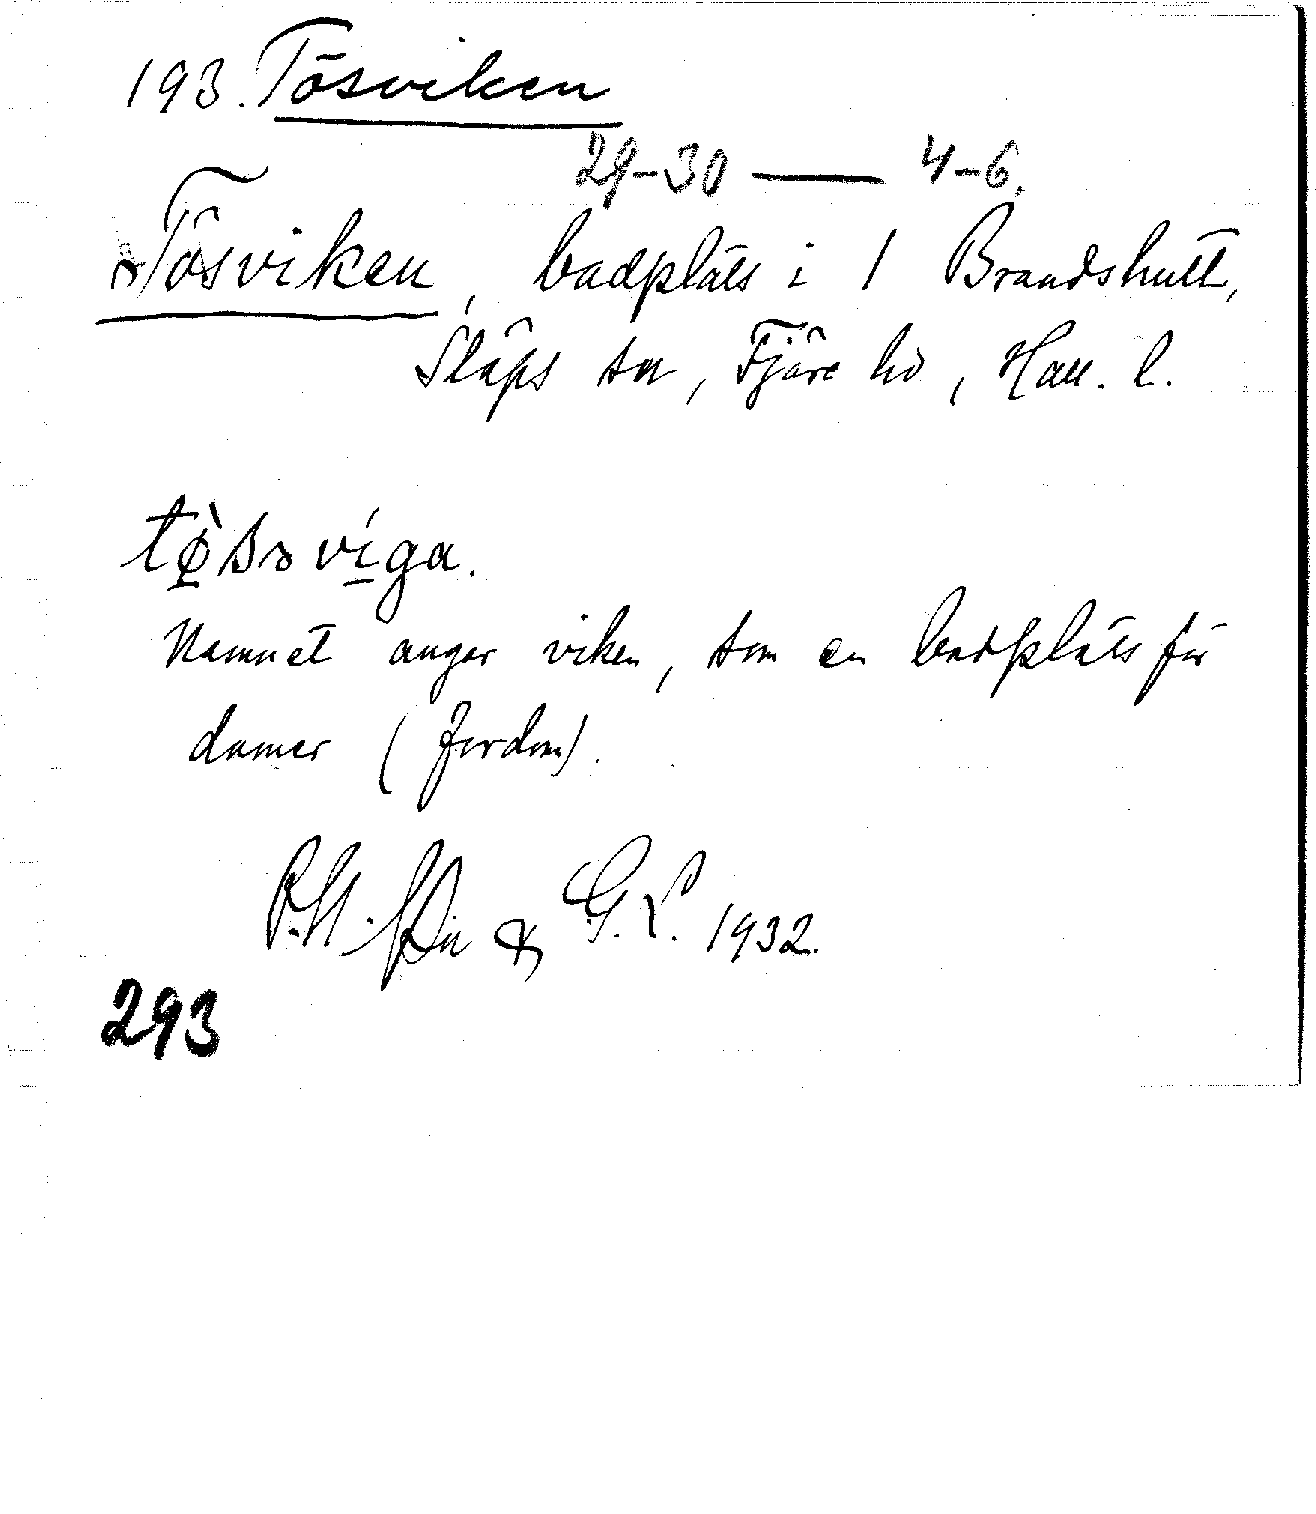 193. Tösviken
29-30 — 4-6.
Tösviken, badplats i 1 Brandshult,
Släps sn, Fjäre hd, Hall. l.
tø̀sə víga.
Namnet anger viken, som en badplats för
damer (fordom).
& G. L. 1932.
293